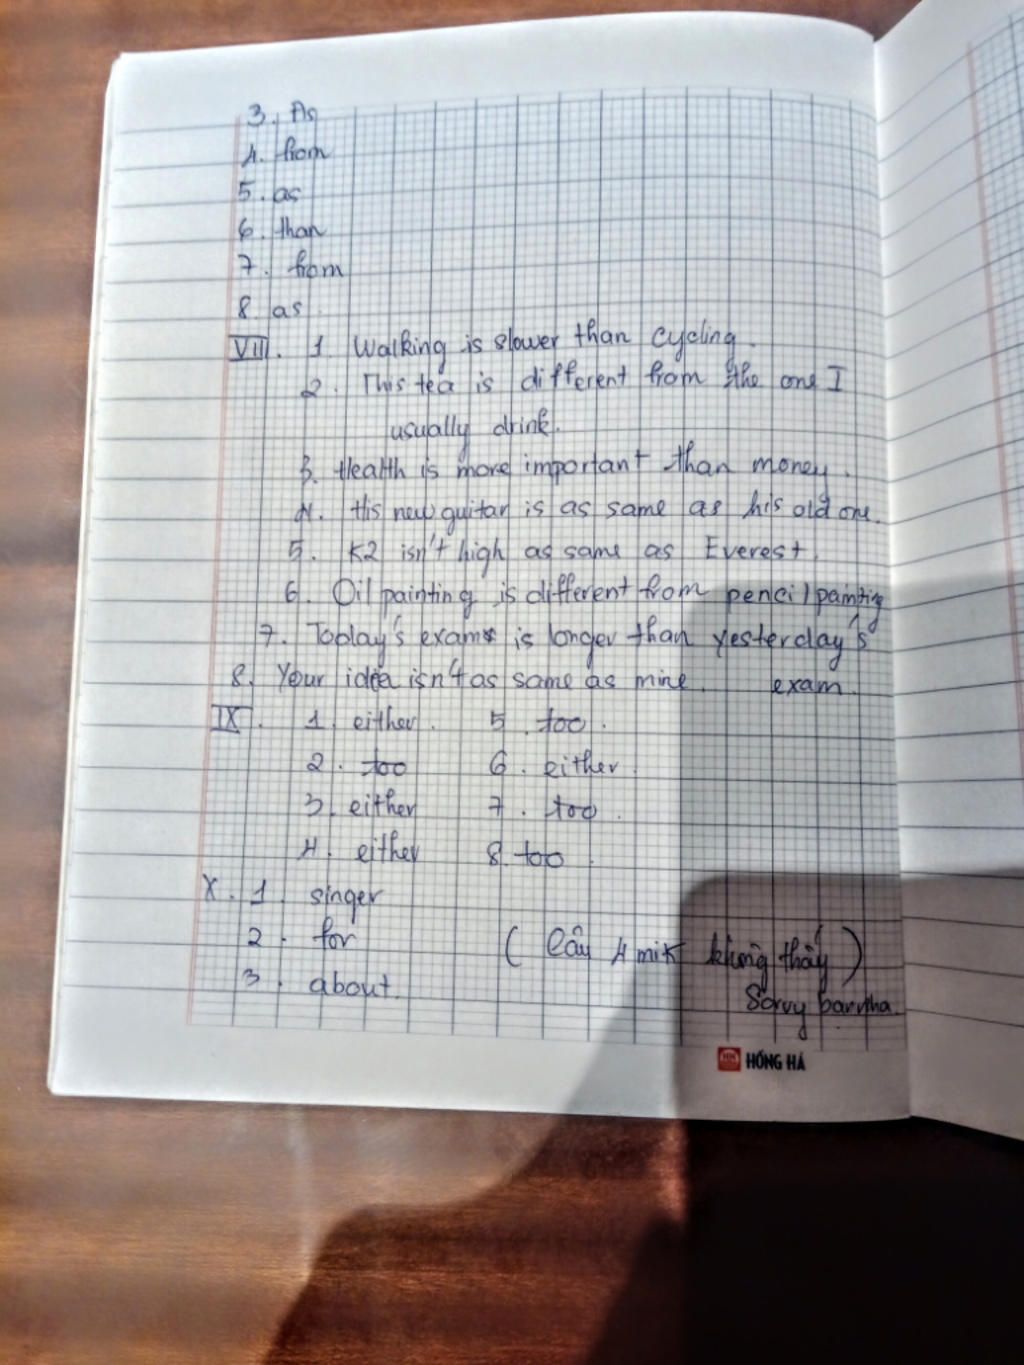 3. As
4. from
5. as
6. than
7. from
8. as
VII. 1 Walking is slower than cycling.
2. This tea is different from the one I
usually drink.
3. Health is more important than money.
4. His new guitar is as same as his old one.
5. K2 isn't high as same as Everest.
6. Oil painting is different from pencil painting
7. Today's exam is longer than yesterday's
8. Your idea isn't as same as mine. exam.
IX. 1. either. 5. too.
2. too 6. either.
3. either 7. too.
4. either 8. too.
X. 1. singer
2. for (Câu 4 mik không thấy)
3. about. Sorry
HỒNG HÀ